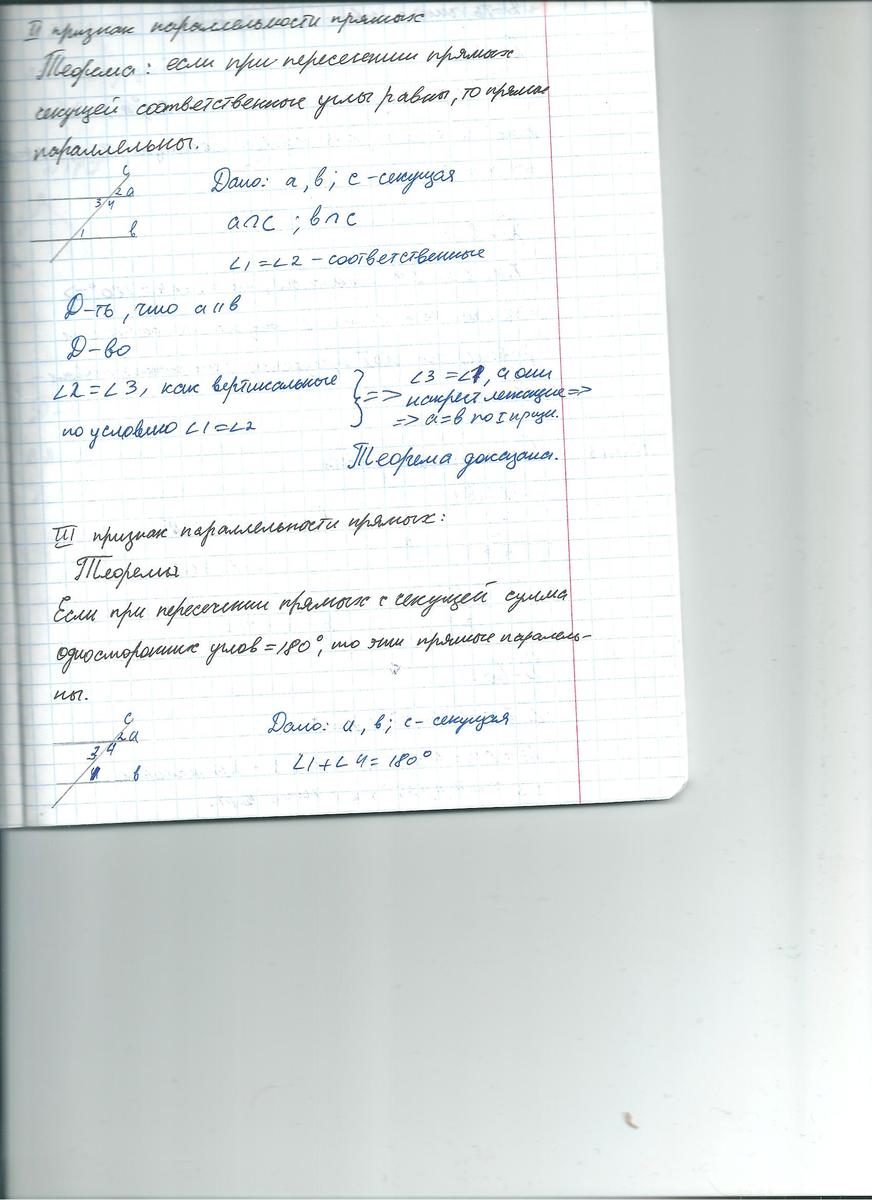 II признак параллельности прямых
Теорема: если при пересечении прямых
секущей соответственные углы равны, то прямые
параллельны.
c
2 a
3 4
1 в
Дано: a, в; c - секущая
a∩c ; в∩c
∠1 = ∠2 - соответственные
Д-ть, что a ıı в
Д-во
∠2 = ∠3, как вертикальные
по условию ∠1 = ∠2
} => ∠3 = ∠1, а они
накрест лежащие =>
=> a = в по I призн.
Теорема доказана.
III признак параллельности прямых:
Теорема
Если при пересечении прямых с секущей сумма
односторонних углов = 180°, то эти прямые паралель-
ны.
c
2 a
3 4
1 в
Дано: a, в; c - секущая
∠1 + ∠4 = 180°